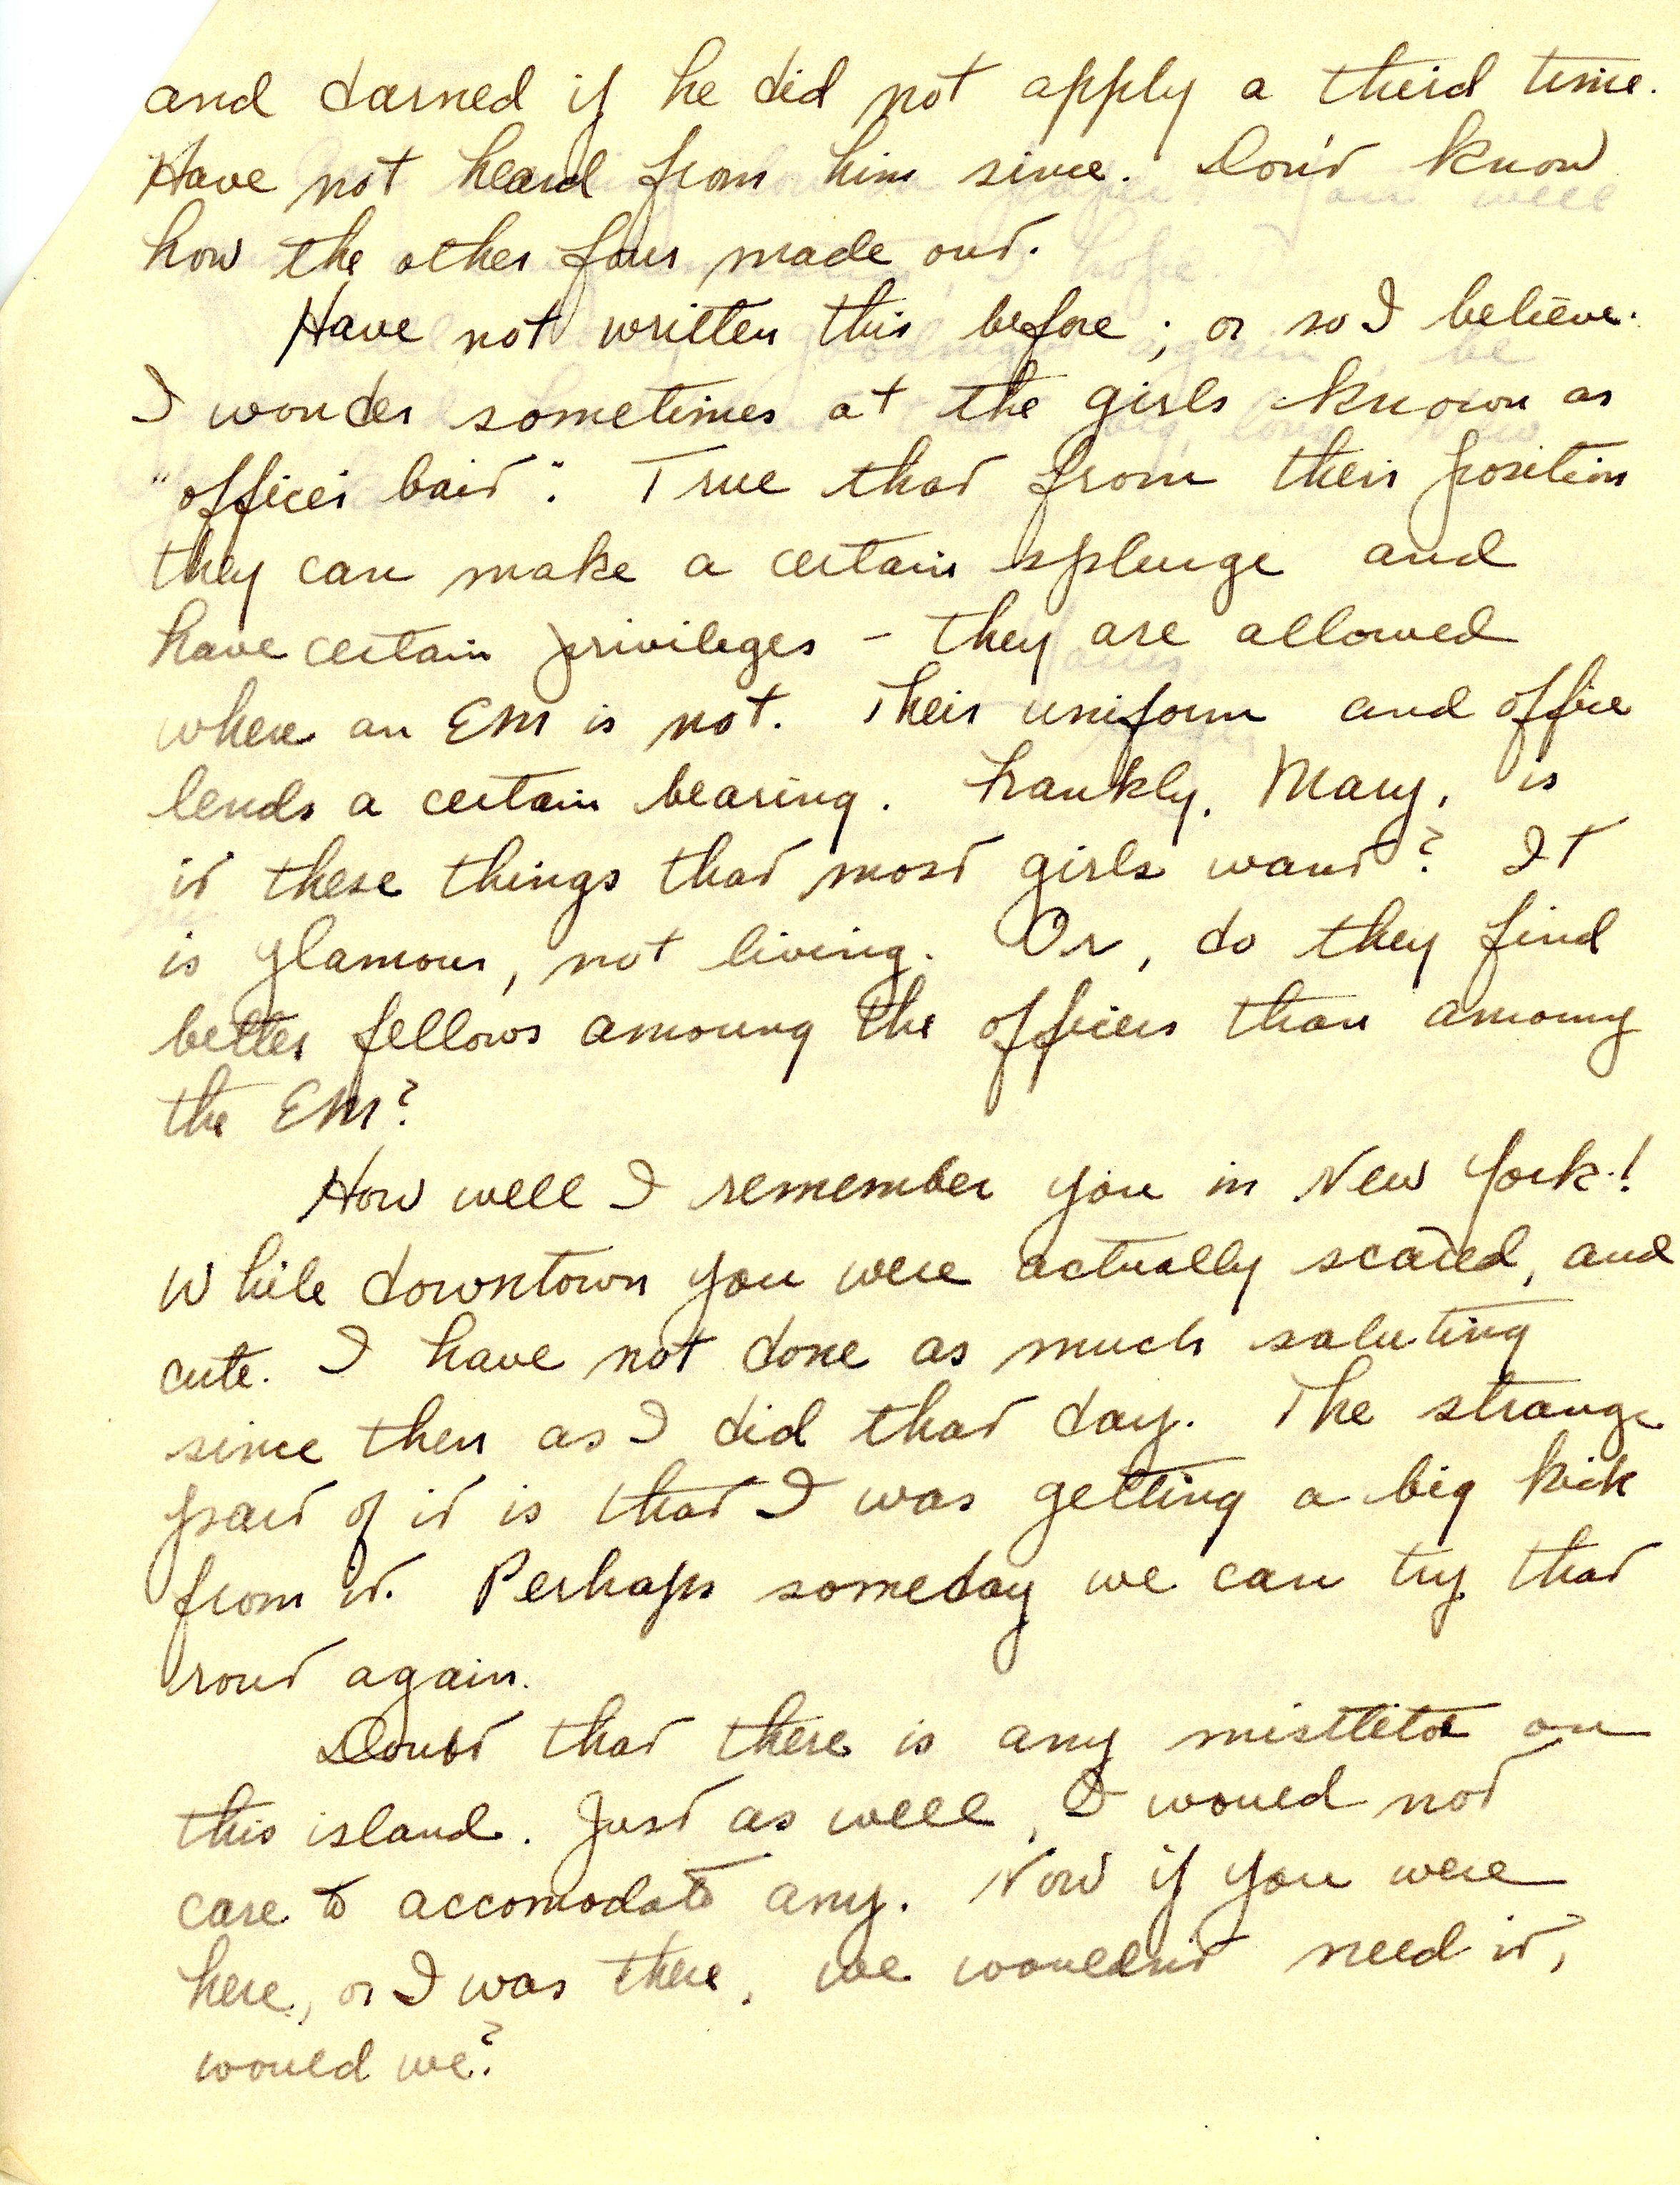 and darned if he did not apply a third time.
Have not heard from him since. Don't know
how the other four made out.
Have not written this before; or so I believe.
I wonder sometimes at the girls known as
"officer bait". True that from their position
they can make a certain splurge and
have certain privileges - they are allowed
where an EM is not. Their uniform and office
lends a certain bearing. Frankly, Mary, is
it these things that most girls want? It
is glamour, not living. Or, do they find
better fellows amoung the officers than amoung
the EM?
How well I remember you in New York!
While downtown you were actually scared, and
cute. I have not done as much saluting
since then as I did that day. The strange
part of it is that I was getting a big kick
from it. Perhaps someday we can try that
rout again.
Doubt that there is any mistletoe on
this island. Just as well, I would not
care to accomodate any. Now if you were
here, or I was there, we wouldn't need it,
would we?